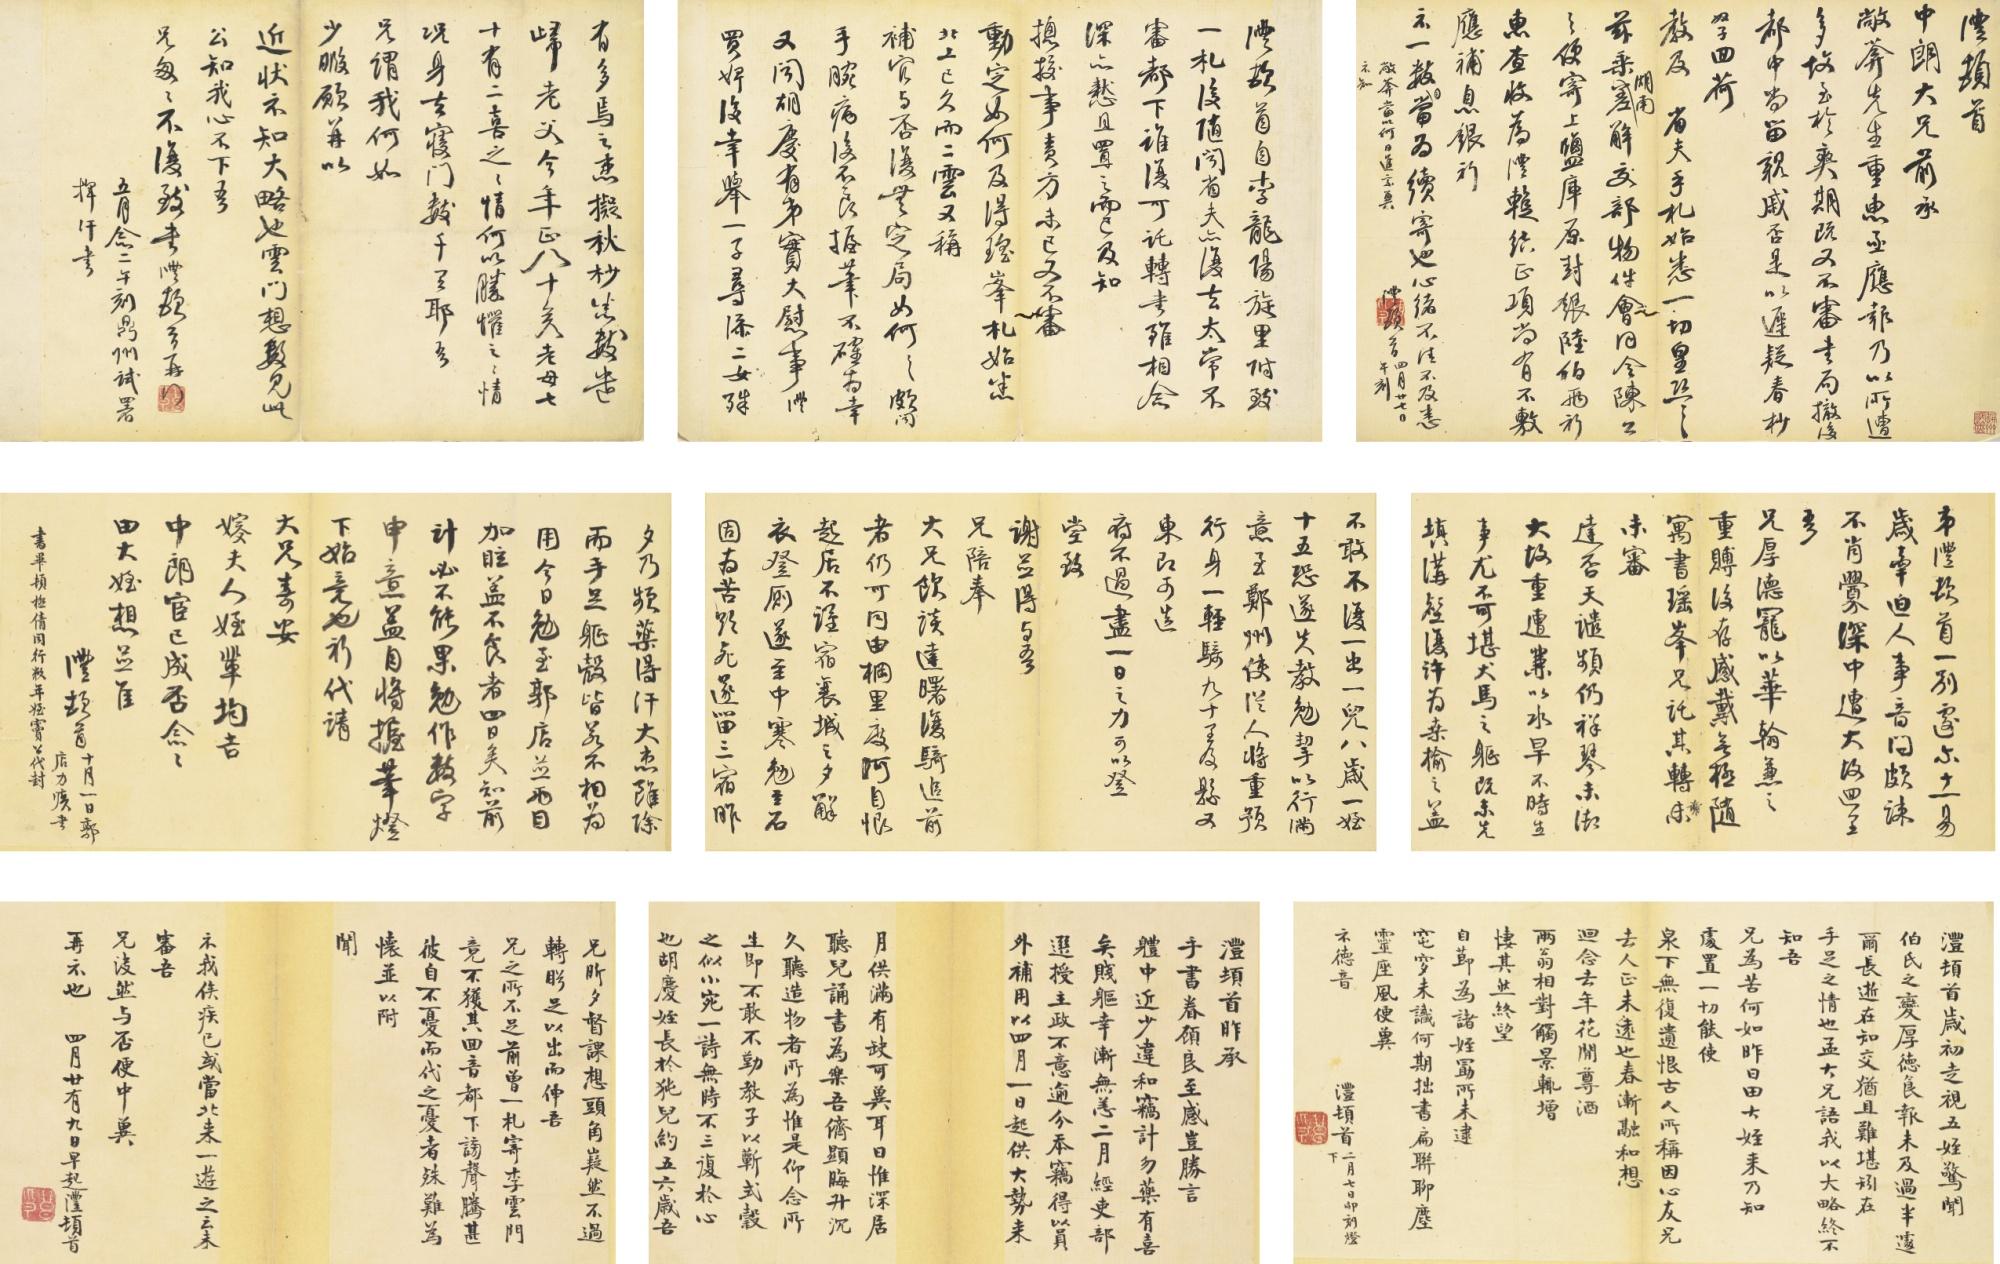 澧頓首
中朗大兄前承
敞莽先生重惠亟應報乃以所遭
多故至於爽期既又不審書局撤後
都中尚留親戚否是以遲疑春杪
四荷
教及省夫手札始悉一切皇恐之
茲乘湖南
之便寄上鹽庫原封銀陸拾兩祈
惠查收為澧轉結正項尚有不敷
應補息銀祈
示一數當為續寄也心緒不佳不及悉
澧頓首
四月廿七日
午刻
澧頓首自李龍陽旋里附致
一札後隨聞省夫亦復去太常不
審都下誰復可託轉書雖相念
深亦愁且置之而已及知
摠接事責方未已又不審
動定如何及得瑤峯札始悉
北上已久而二雲又稱
補官与否復無定局如何之
手腕病後不良握筆不確為幸
又聞胡慶有弟實大慰事澧
買婢後幸舉一子尋添二女殊
有多焉之恚擬秋杪
歸老父今年正八十矣老母七
十有二喜之之情何以勝懼之之情
況身去寢門數千里耶吾
兄謂我何如
少暇願再以
近狀示知大略也雲門想數見此
公知我心不下吾
兄匆之不復致書澧頓首再
五月念二午刻
揮汗書
弟澧頓首一別遽尔十一易
歲卒迫人事音問頗疎
不肖釁深中遭大故四至
吾
兄厚德寵以華翰兼之
重賻後存感戴無極隨
寓書瑤峯兄託其轉
未審
達否天譴頻仍祥琴未御
大故重遭兼以水旱不時生
事尤不可堪犬馬之軀既未先
填溝壑復許為桑榆之益
不敢不復一出一兒八歲一姪
十五恐遂失教勉挈以行滿
意至鄭州使從人將重預
行身一輕騎九十里及縣又
東即可造
府不過盡一日之力可以登
堂致
謝并得与吾
兄陪奉
大兄飲談達曙復騎追前
者仍可同由桐里度何自恨
起居不謹宿襄城之夕解
衣登廁遂至中寒勉至石
固為苦幾死遂留三宿昨
夕乃頻藥得汗大恚雖除
而手足軀殼皆若不相為
用今日勉至郭店並兩目
加眩益不食者四日矣知前
計必不能果勉作數字
申意益自將握筆燈
下始竟也祈代請
大兄寿安
嫂夫人姪輩均吉
中朗宦已成否念之
田大姪想並佳
澧頓首
十月一日郭
店力疾書
書畢頓極倩同行教年姪竇公代封
澧頓首歲初走視五姪驚聞
伯氏之變厚德食報未及過半遽
爾長逝在知交猶且難堪矧在
手足之情也孟大兄語我以大略終不
知吾
兄為苦何如昨日田大姪来乃知
處置一切飲使
泉下無復遺恨古人所稱因心友兄
去人正未遠也春漸融和想
迴念去年花開尊酒
兩翁相對觸景輒增
悽其然終望
自節為諸姪勗所未逮
窀穸未識何期拙書扁聯聊塵
靈座風使冀
示德音
澧頓首
二月七日卯刻燈
下
澧頓首昨承
手書眷顧良至感豈勝言
軆中近少違和竊計勿藥有喜
矣賤軀幸漸無恙二月經吏部
選授主政不意適分本竊得以員
外補用以四月一日起供大勢来
月供滿有缺可冀耳日惟深居
聽兒誦書為樂吾儕顯晦升沉
久聽造物者所為惟是仰念所
生即不敢不勤教子以蘄式穀
之似小宛一詩無時不三復於心
也胡慶姪長於犹兒約五六歲吾
兄昕夕督課想頭角嶷然不過
轉眄足以出而伸吾
兄之所不足前曾一札寄李雲門
竟不獲其回音都下謗聲騰甚
彼自不憂而代之憂者殊難為
懷並以附
聞
示我俟疾已或當北来一遊之云未
審吾
兄浚然与否便中冀
再示也
四月廿有九日早起澧頓首